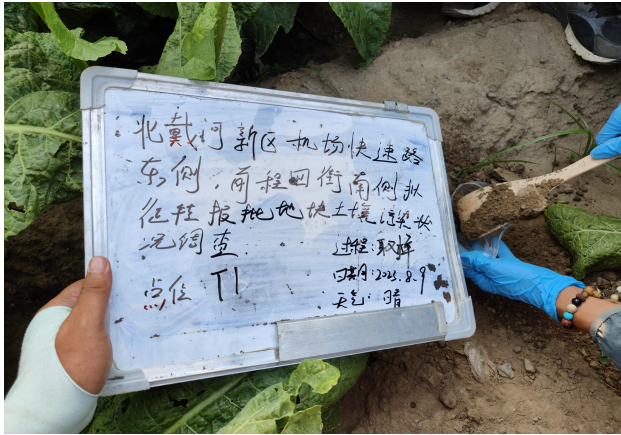 北戴河新区机场快速路
东侧，前程四街南侧拟
征转报批地块土壤污染状
况调查
过程:取样
点位 T1
日期:2023.8.9
天气:晴